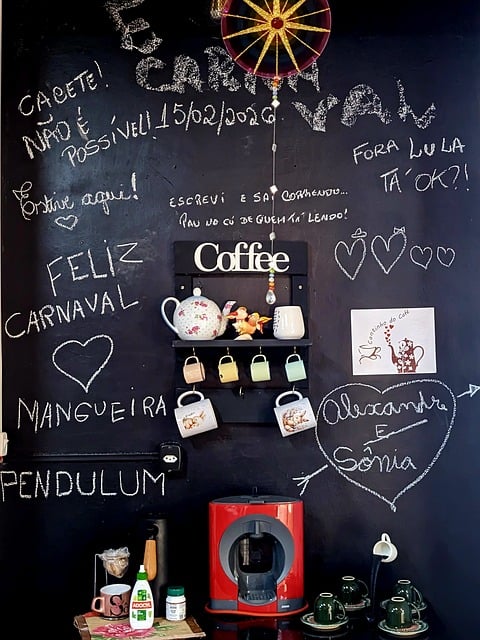 É
CARNA
VAL
15/02/2026
CACETE!
NÃO É
POSSÍVEL!
FORA LULA
TÁ OK?!
Estive aqui!
ESCREVI E SAÍ CORRENDO...
PAU NO CÚ DE QUEM TÁ LENDO!
FELIZ
CARNAVAL
Coffee
Cantinho do Café
MANGUEIRA
Alexandre
E
Sônia
PENDULUM
S
ADOCYL